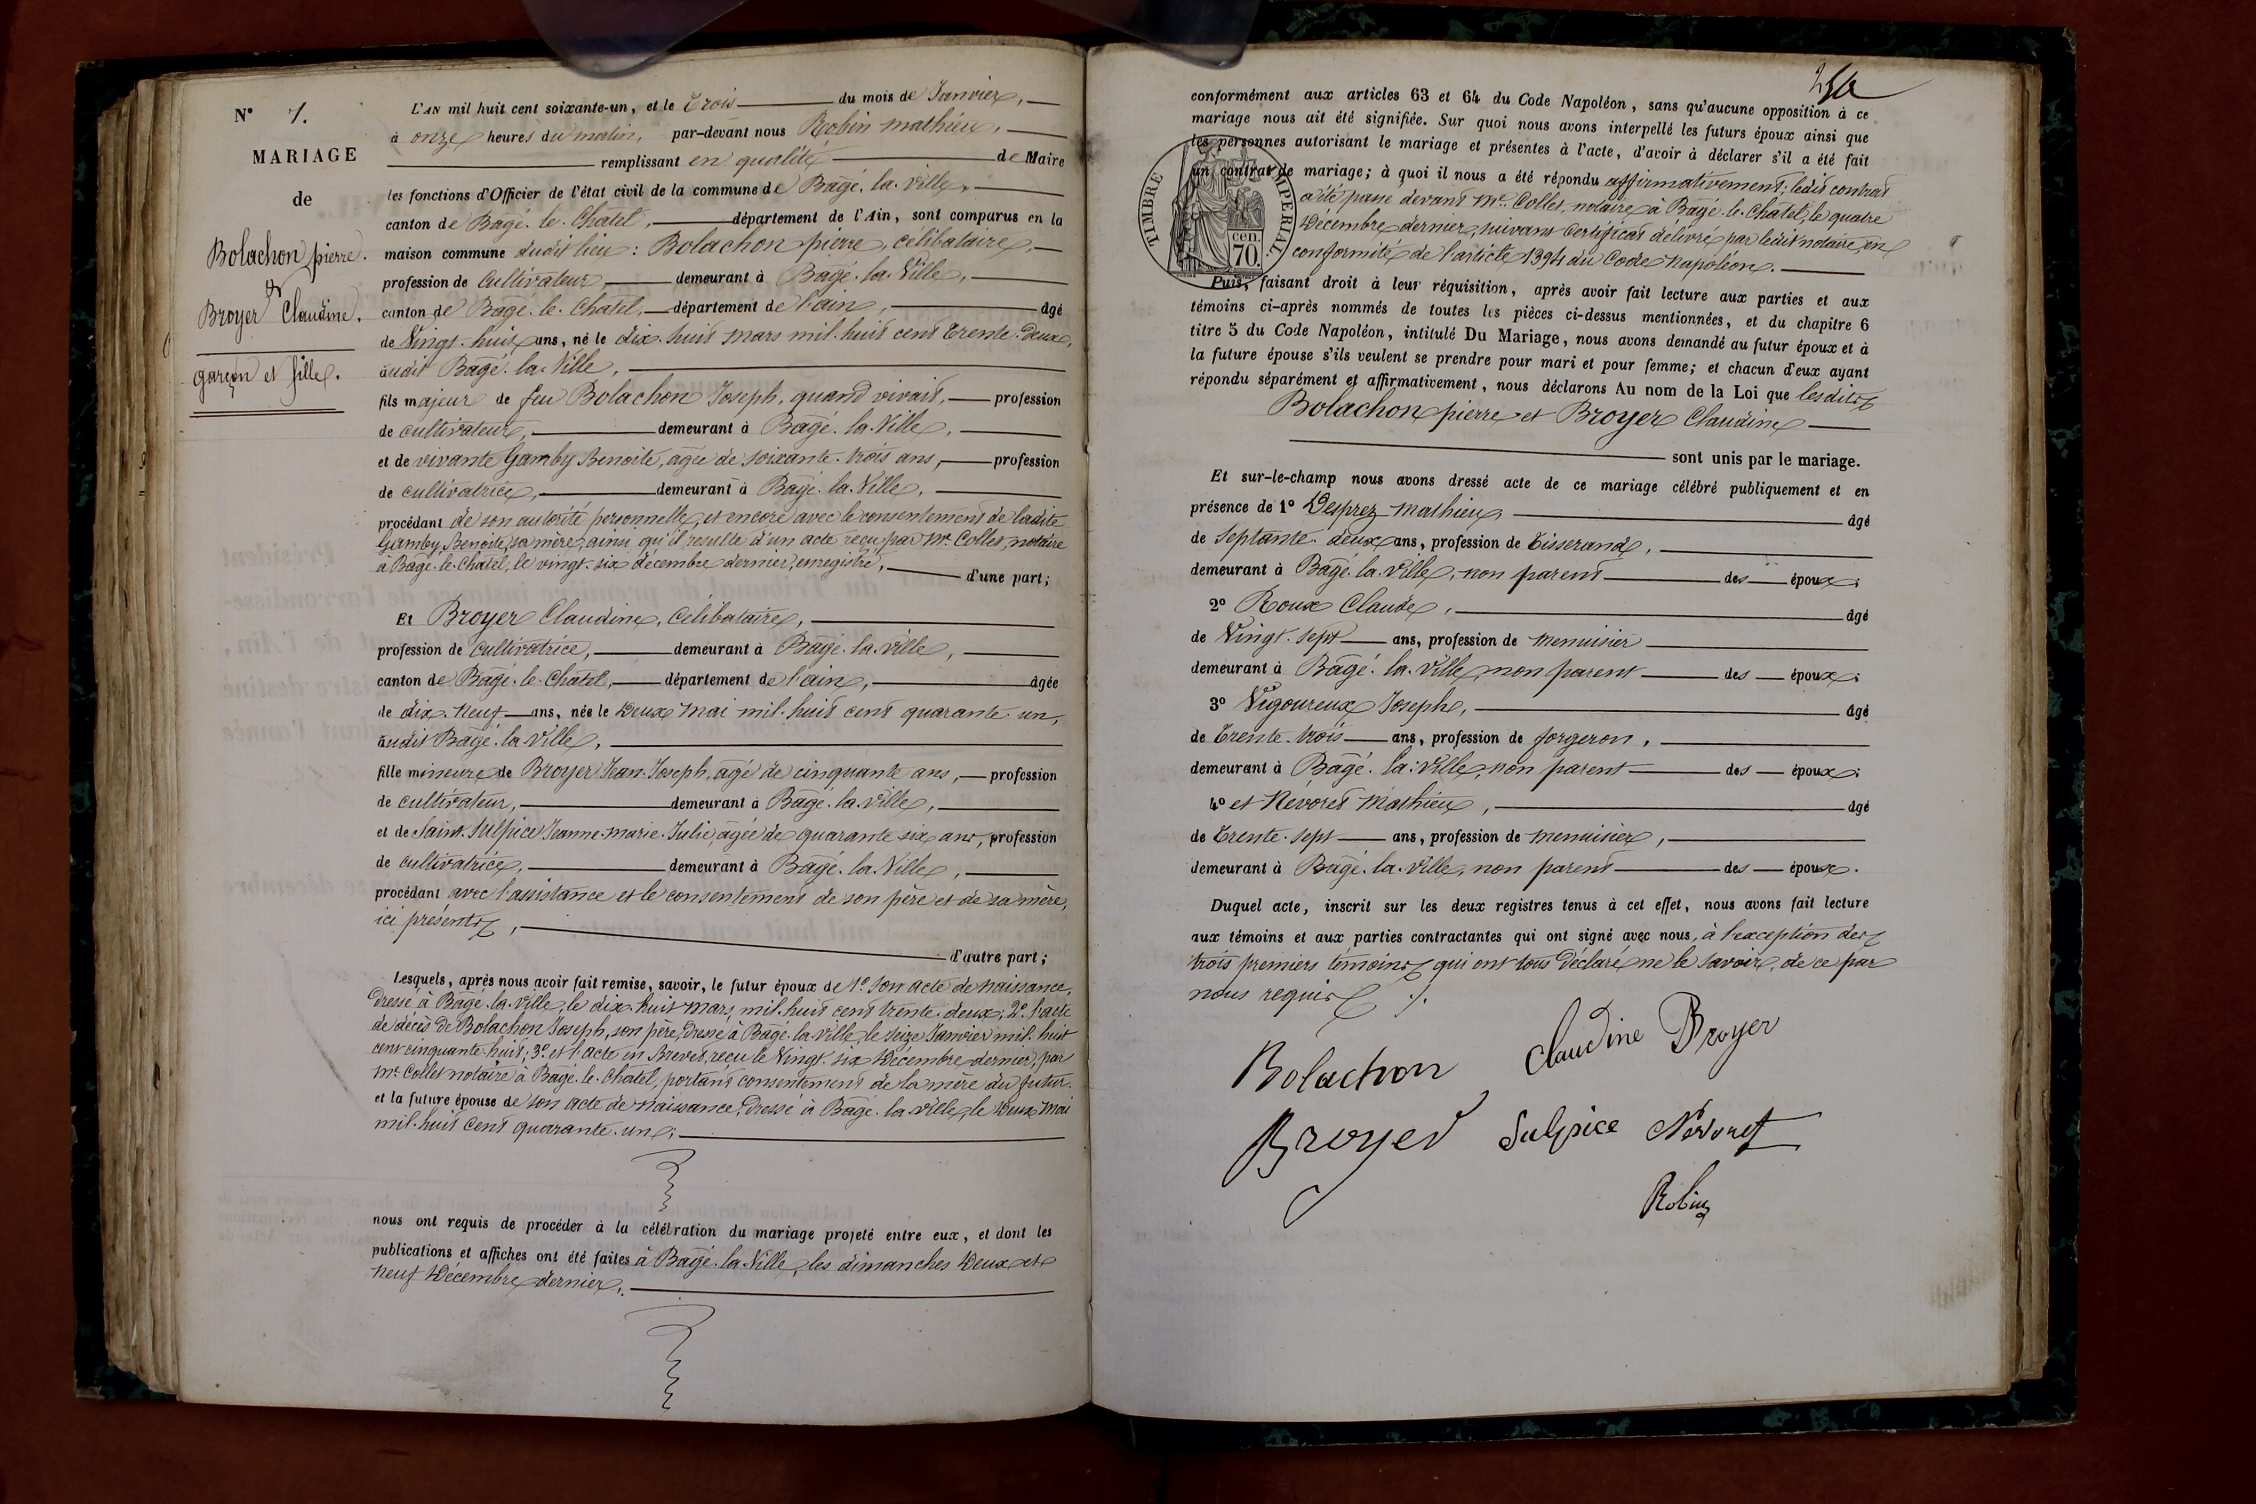 N° 1.
MARIAGE
de
Bolachon pierre.
et
Broyer Claudine.
garçon et fille.
L'AN mil huit cent soixante-un, et le Trois du mois de Janvier,
à onze heures du matin, par-devant nous Robin mathieu,
remplissant en qualité de Maire
les fonctions d'Officier de l'état civil de la commune de Bagé-la-Ville,
canton de Bagé-le-Chatel, département de l'Ain, sont comparus en la
maison commune dudit lieu : Bolachon pierre, célibataire,
profession de Cultivateur, demeurant à Bagé-la-Ville,
canton de Bagé-le-Chatel, département de l'ain, âgé
de Vingt-huit ans, né le dix-huit mars mil-huit cent trente-deux,
audit Bagé-la-Ville,
fils majeur de feu Bolachon Joseph, quand vivait, profession
de cultivateur, demeurant à Bagé-la-Ville,
et de vivante Gamby Benoite, agée de soixante-trois ans, profession
de cultivatrice, demeurant à Bagé-la-Ville,
procédant de son autorité personnelle, et encore avec le consentement de ladite
Gamby Benoite, sa mère, ainsi qu'il résulte d'un acte reçu par Mr. Collet, notaire
à Bagé-le-Chatel, le vingt-six décembre dernier, enregistré, d'une part;
Et Broyer Claudine, Célibataire,
profession de Cultivatrice, demeurant à Bagé-la-Ville,
canton de Bagé-le-Chatel, département de l'ain, âgée
de dix-neuf ans, née le Deux Mai mil-huit cent quarante-un,
audit Bagé-la-Ville,
fille mineure de Broyer Jean-Joseph, agé de cinquante ans, profession
de cultivateur, demeurant à Bagé-la-Ville,
et de Saint-Sulpice Jeanne-marie-Julie, agée de quarante six ans, profession
de cultivatrice, demeurant à Bagé-la-Ville,
procédant avec l'assistance et le consentement de son père et de sa mère,
ici présents,
d'autre part;
Lesquels, après nous avoir fait remise, savoir, le futur époux de 1°. Son acte de naissance,
Dressé à Bagé-la-Ville, le dix-huit mars, mil-huit cent trente-deux; 2°. l'acte
de décès de Bolachon Joseph, son père, dressé à Bagé-la-Ville, le seize Janvier mil-huit
cent cinquante-huit; 3°. et l'acte en Brevet, reçu le Vingt-six Décembre dernier, par
Mr. Collet notaire à Bagé-le-Chatel, portant consentement de la mère du futur.
et la future épouse de son acte de naissance, Dressé à Bagé-la-Ville, le deux mai
mil-huit cent quarante-un;
nous ont requis de procéder à la célébration du mariage projeté entre eux, et dont les
publications et affiches ont été faites à Bagé-la-Ville, les dimanches Deux et
Neuf Décembre dernier,
conformément aux articles 63 et 64 du Code Napoléon, sans qu'aucune opposition à ce
mariage nous ait été signifiée. Sur quoi nous avons interpellé les futurs époux ainsi que
les personnes autorisant le mariage et présentes à l'acte, d'avoir à déclarer s'il a été fait
un contrat de mariage; à quoi il nous a été répondu affirmativement; ledit contrat
a été passé devant Mr. Collet, notaire à Bagé-le-Chatel, le quatre
Décembre dernier, suivant certificat délivré par ledit notaire, en
conformité de l'article 1394 du Code Napoléon.
TIMBRE IMPERIAL.
70. cen.
Puis, faisant droit à leur réquisition, après avoir fait lecture aux parties et aux
témoins ci-après nommés de toutes les pièces ci-dessus mentionnées, et du chapitre 6
titre 5 du Code Napoléon, intitulé Du Mariage, nous avons demandé au futur époux et à
la future épouse s'ils veulent se prendre pour mari et pour femme; et chacun d'eux ayant
répondu séparément et affirmativement, nous déclarons Au nom de la Loi que lesdits
Bolachon pierre et Broyer Claudine
sont unis par le mariage.
Et sur-le-champ nous avons dressé acte de ce mariage célébré publiquement et en
présence de 1° Desprez Mathieu, âgé
de Septante-deux ans, profession de Tisserand,
demeurant à Bagé-la-Ville, non parent des époux;
2° Roux Claude, âgé
de Vingt-sept ans, profession de menuisier
demeurant à Bagé-la-Ville, non parent des époux;
3° Vigoureux Joseph, âgé
de Trente-trois ans, profession de forgeron,
demeurant à Bagé-la-Ville, non parent des époux;
4° et Névoret Mathieu, âgé
de Trente-sept ans, profession de menuisier,
demeurant à Bagé-la-Ville, non parent des époux.
Duquel acte, inscrit sur les deux registres tenus à cet effet, nous avons fait lecture
aux témoins et aux parties contractantes qui ont signé avec nous, à l'exception des
trois premiers témoins qui ont tous déclaré ne le savoir, de ce par
nous requis ./.
Bolachon Claudine Broyer
Broyer Sulpice Névoret
Robin